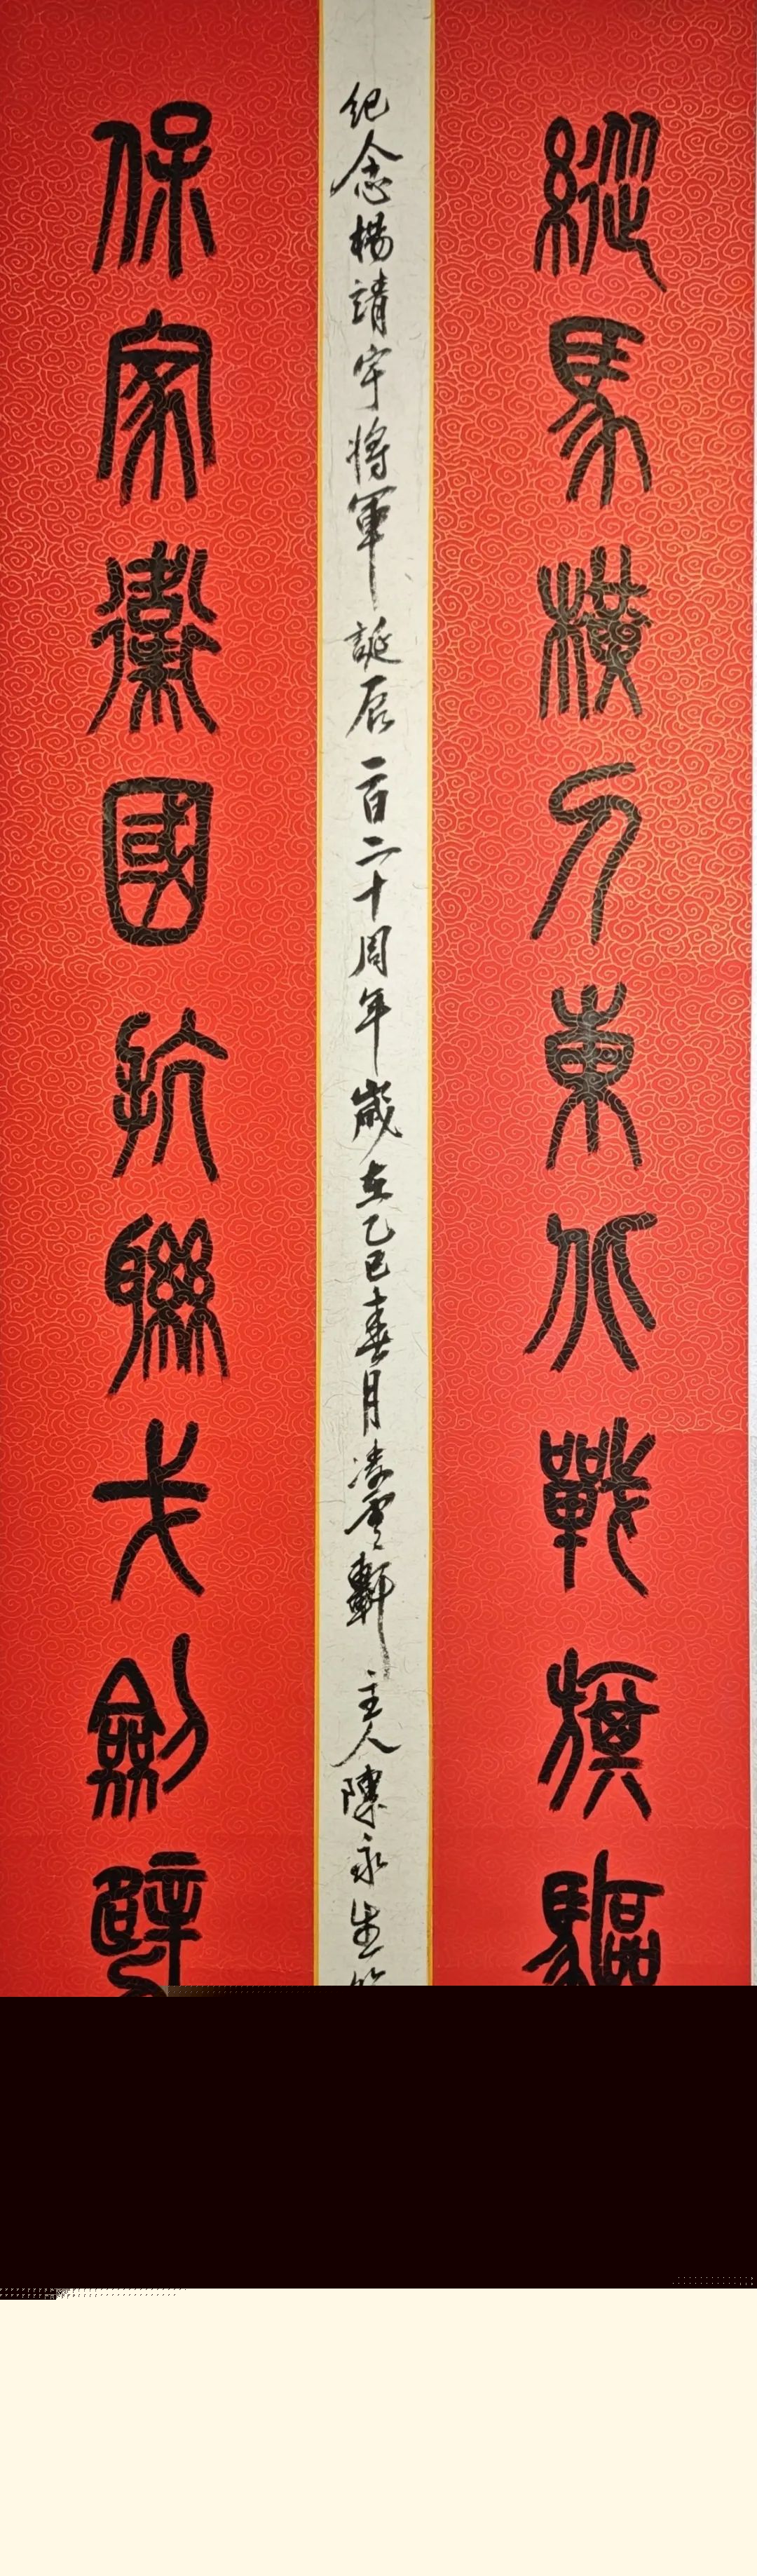 縱馬橫刀東北戰旗驅
紀念楊靖宇將軍誕辰一百二十周年歲在乙巳春月凌雲軒主人陳永生
保家衛國抗聯戈劍